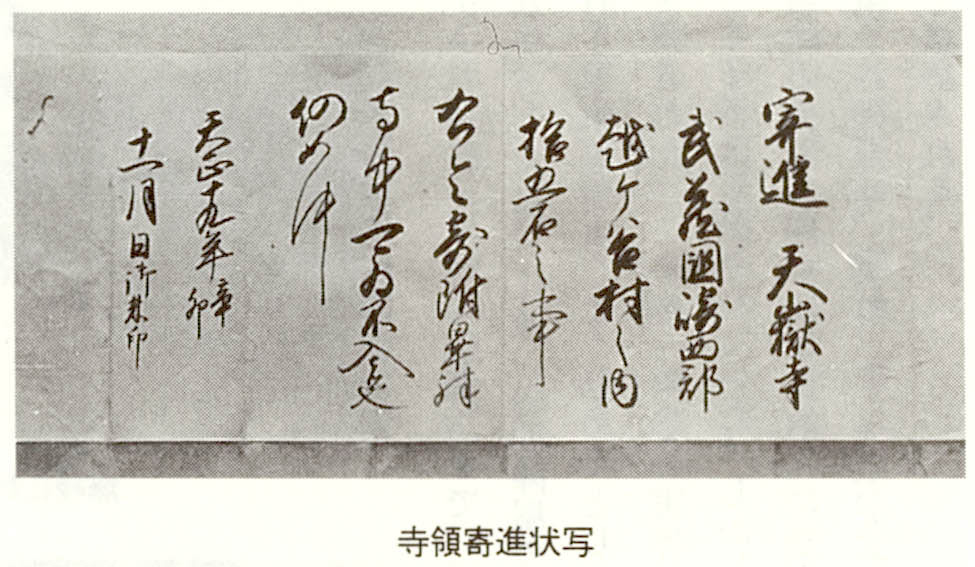 寄進 天嶽寺
武蔵國崎西郡
越ケ谷村之内
拾五石之事
右令寄附畢殊
寺中可為不入者也
仍如件
天正十九年辛卯
十一月日御朱印
寺領寄進状写